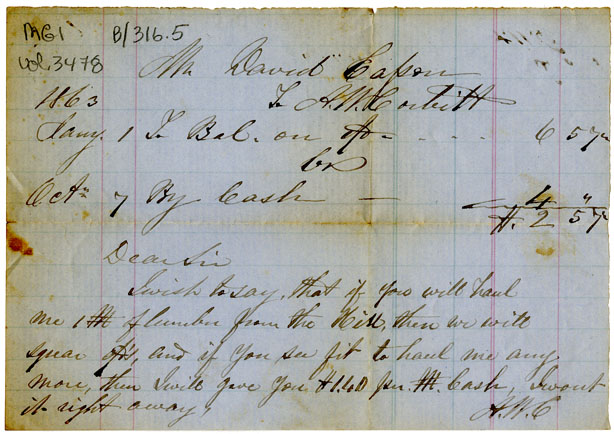 B/316.5
Vol. 3478
Mr David Eason
1863 To A.W. Corbitt
Jany. 1 To Bal. on 6 57
Cr
Oct 7 By Cash 4 "
$. 2 57
Dear Sir
I wish to say, that if you will haul
me 1 M of lumber from the Mill, then we will
squar and if you see fit to haul me any
more, then I will give you per M. Cash, I want
it right away
A.W.C